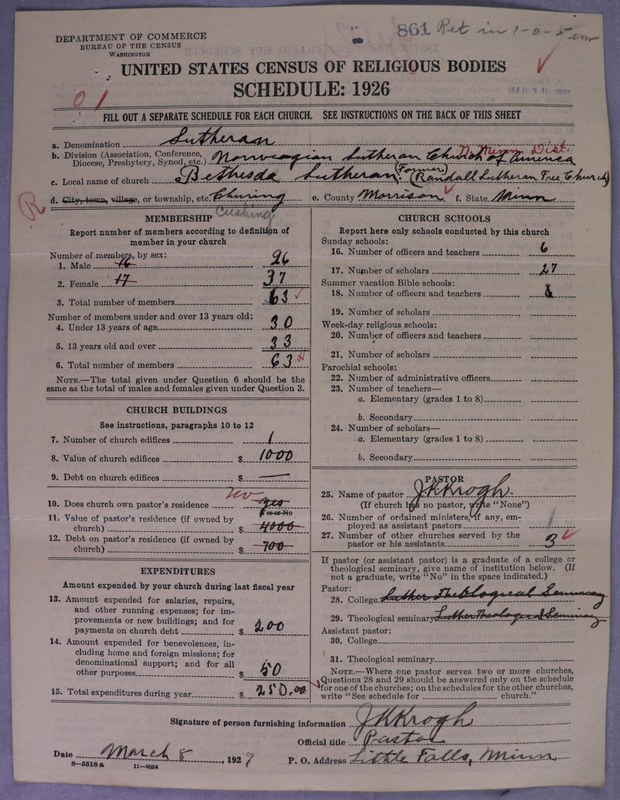 861 Ret in 1-0-5 em
DEPARTMENT OF COMMERCE
BUREAU OF THE CENSUS
WASHINGTON
UNITED STATES CENSUS OF RELIGIOUS BODIES
SCHEDULE: 1926
01
FILL OUT A SEPARATE SCHEDULE FOR EACH CHURCH. SEE INSTRUCTIONS ON THE BACK OF THIS SHEET
a. Denomination Lutheran
N. Minn. Dist.
b. Division (Association, Conference, Diocese, Presbytery, Synod, etc.) Norwegian Lutheran Church of America
c. Local name of church Bethesda Lutheran (Former) (Randall Lutheran Free Church)
d. City, town, village, or township, etc. Churing e. County Morrison f. State Minn
Cushing
R
MEMBERSHIP
Report number of members according to definition of
member in your church
Number of members, by sex:
1. Male 16 26
2. Female 17 37
3. Total number of members 63
Number of members under and over 13 years old:
4. Under 13 years of age 30
5. 13 years old and over 33
6. Total number of members 63
NOTE.—The total given under Question 6 should be the
same as the total of males and females given under Question 3.
CHURCH BUILDINGS
See instructions, paragraphs 10 to 12
7. Number of church edifices 1
8. Value of church edifices $ 1000
9. Debt on church edifices $ —
no
10. Does church own pastor's residence yes
Yes or No
11. Value of pastor's residence (if owned by
church) $ 4000
12. Debt on pastor's residence (if owned by
church) $ 700
EXPENDITURES
Amount expended by your church during last fiscal year
13. Amount expended for salaries, repairs,
and other running expenses; for im-
provements or new buildings; and for
payments on church debt $ 200
14. Amount expended for benevolences, in-
cluding home and foreign missions; for
denominational support; and for all
other purposes $ 50
15. Total expenditures during year $ 250.00
CHURCH SCHOOLS
Report here only schools conducted by this church
Sunday schools:
16. Number of officers and teachers 6
17. Number of scholars 27
Summer vacation Bible schools:
18. Number of officers and teachers
19. Number of scholars
Week-day religious schools:
20. Number of officers and teachers
21. Number of scholars
Parochial schools:
22. Number of administrative officers
23. Number of teachers—
a. Elementary (grades 1 to 8)
b. Secondary
24. Number of scholars—
a. Elementary (grades 1 to 8)
b. Secondary
PASTOR
25. Name of pastor J K Krogh.
(If church has no pastor, write "None")
26. Number of ordained ministers, if any, em-
ployed as assistant pastors
27. Number of other churches served by the
pastor or his assistants 3
If pastor (or assistant pastor) is a graduate of a college or
theological seminary, give name of institution below. (If
not a graduate, write "No" in the space indicated.)
Pastor:
28. College Luther Theological Seminary
29. Theological seminary Luther Theological Seminary
Assistant pastor:
30. College
31. Theological seminary
NOTE.—Where one pastor serves two or more churches,
Questions 28 and 29 should be answered only on the schedule
for one of the churches; on the schedules for the other churches,
write "See schedule for church."
Signature of person furnishing information J K Krogh
Official title Pastor
Date March 8, 1927 P. O. Address Little Falls, Minn
8—5518 a 11-9054